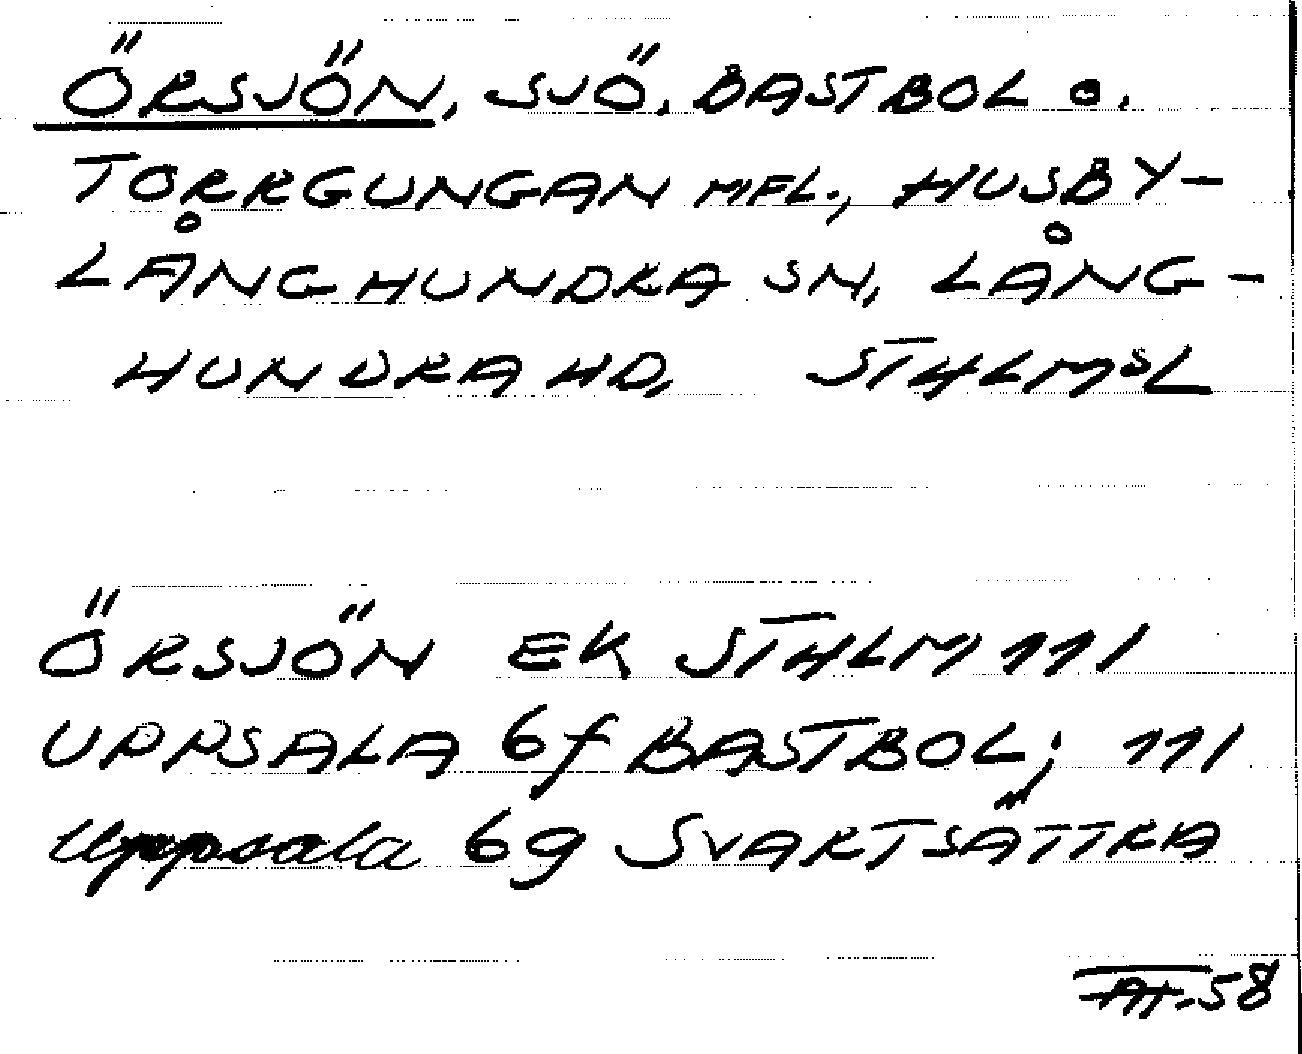 ÖRSJÖN, SJÖ, BASTBOL o.
TORRGUNGAN MFL., HUSBY-
LÅNGHUNDRA SN, LÅNG-
HUNDRA HD, STHLMSL
ÖRSJÖN EK STHLM 111
UPPSALA 6f BASTBOL; 111
Uppsala 6g SVARTSÄTTRA
-58